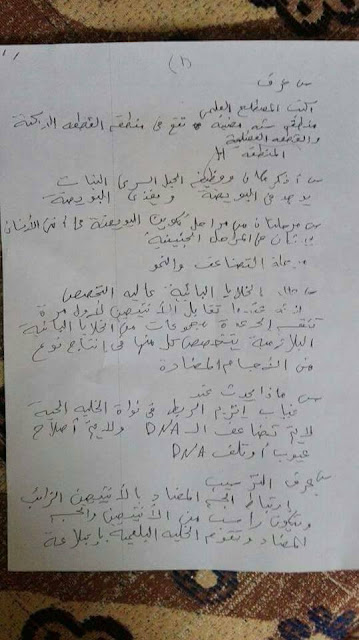 (١)
س عرف
اكتب المصطلح العلمى
منطقه شبه مضيئه تقع فى منطقه القطعه الداكنة
والقطعه العضلية
المنطقه H
س اذكر مكان ووظيفة الحبل السرى النبات
يوجد فى البويضة ويغذى البويضة
س مرحلتان من مراحل تكوين البويضة فى أنثى الأنسان
يتمان فى المراحل الجنينية
مرحلة التضاعف والنمو
س علل الخلايا البائية عاليه التخصص
لانه عندما تقابل الأنتيجين لأول مرة
تنقسم مجموعات من الخلايا البائية
البلازمية يتخصص كل منها فى إنتاج نوع
من الأجسام المضادة
س ماذا يحدث عند
غياب إنزيم الربط فى نواة الخلية الحية
لا يتم تضاعف الـ DNA ولا يتم أصلاح
عيوب أو تلف DNA
س عرف الترسيب
إرتباط الجسم المضاد بالأنتيجين الذائب
ويتكون راسب من الأنتيجين والجسم
المضاد وتقوم الخلية البلعمية بإبتلاعة